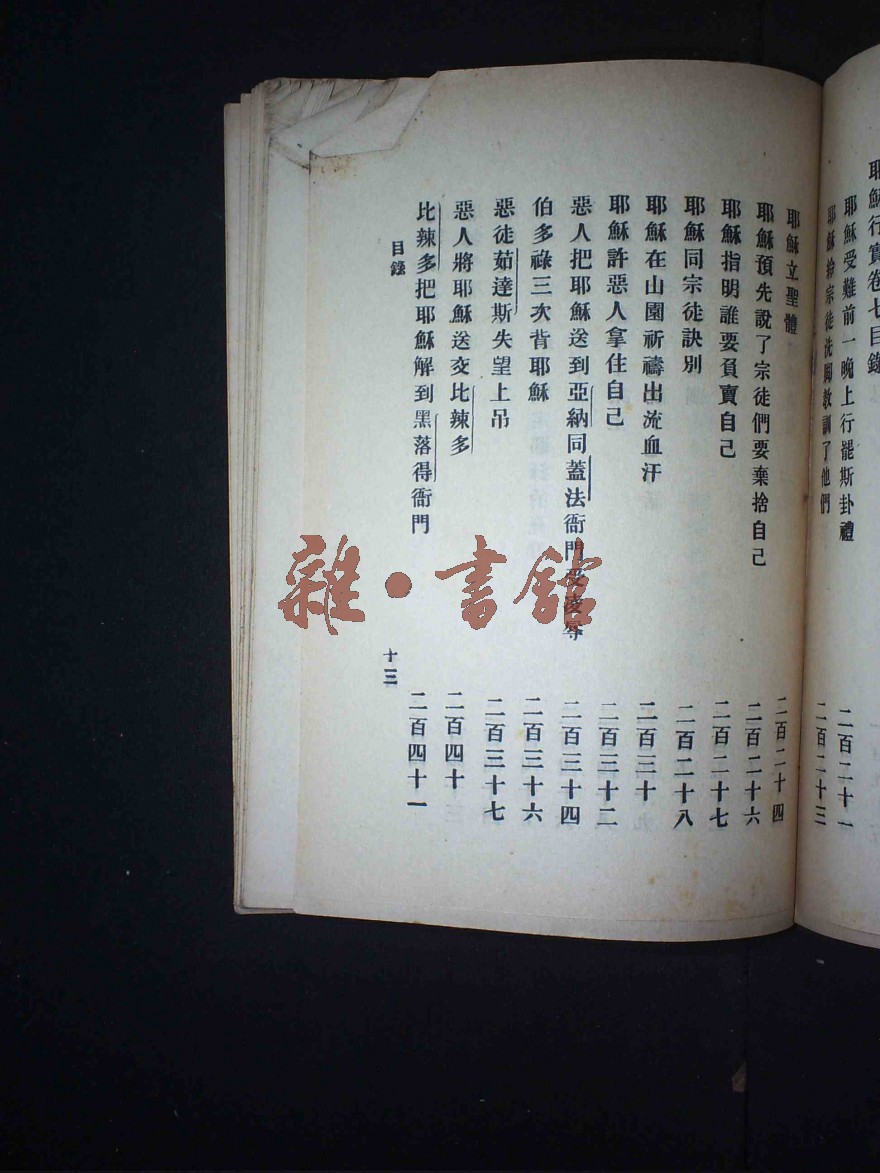 耶穌行實卷七目錄
耶穌受難前一晚上行罷斯卦禮 二百二十一
耶穌給宗徒洗脚教訓了他們 二百二十三
耶穌立聖體 二百二十四
耶穌預先說了宗徒們要棄捨自己 二百二十六
耶穌指明誰要負賣自己 二百二十七
耶穌同宗徒訣別 二百二十八
耶穌在山園祈禱出流血汗 二百三十
耶穌許惡人拿住自己 二百三十二
惡人把耶穌送到亞納同蓋法衙門受凌辱 二百三十四
伯多祿三次背耶穌 二百三十六
惡徒茹達斯失望上吊 二百三十七
惡人將耶穌送交比辣多 二百四十
比辣多把耶穌解到黑落得衙門 二百四十一
目錄 十三
雜·書館